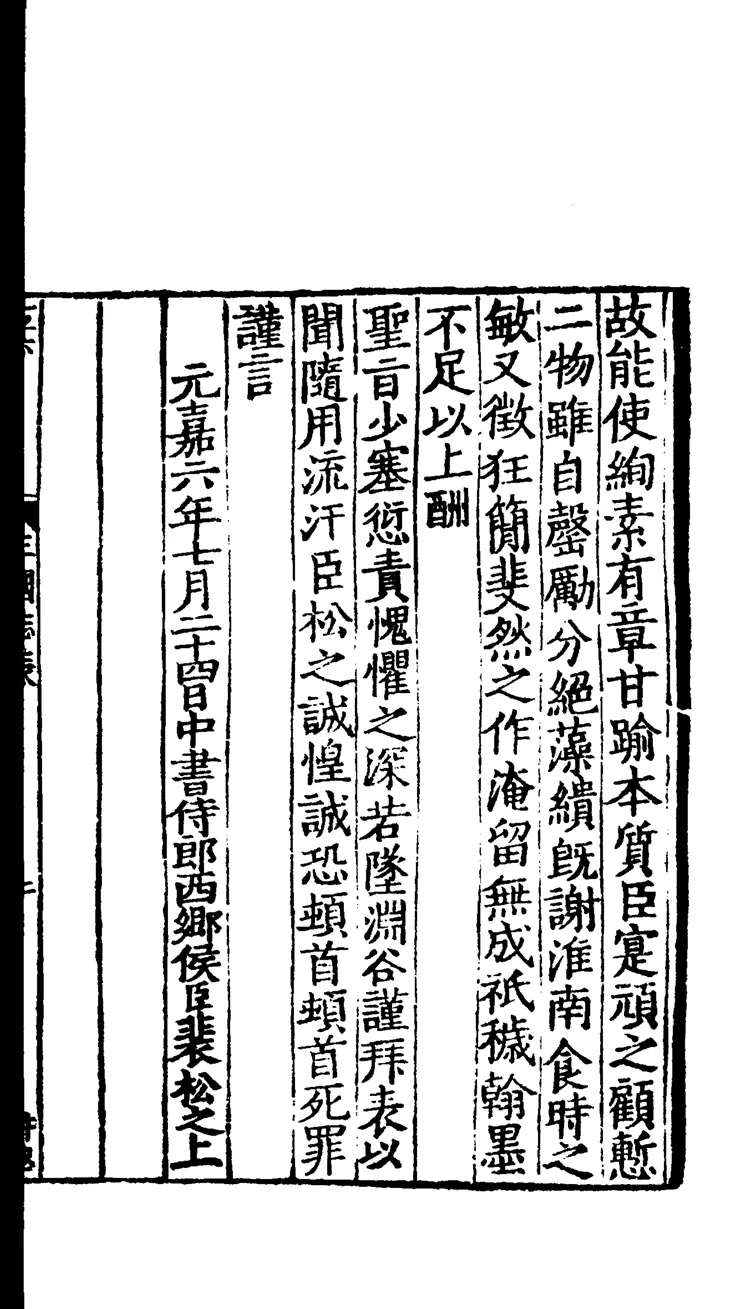 故能使絢素有章甘踰本質臣寔頑之顧慙
二物雖自罄勵分絕藻繢旣謝淮南食時之
敏又微狂簡斐然之作淹留無成祇穢翰墨
不足以上酬
聖旨少塞愆責愧懼之深若墜淵谷謹拜表以
聞隨用流汗臣松之誠惶誠恐頓首頓首死罪
謹言
元嘉六年七月二十四日中書侍郎西鄉侯臣裴松之上
三國志表